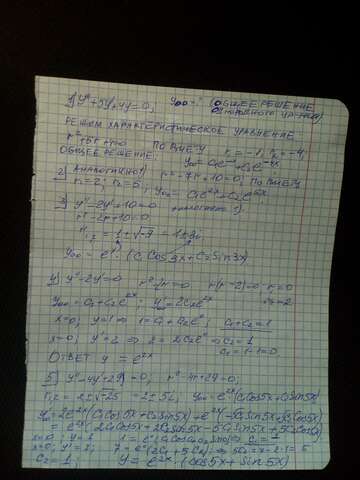 1) y''+5y'+4y=0; y₀₀ = (ОБЩЕЕ РЕШЕНИЕ
РЕШАЕМ ХАРАКТЕРИСТИЧЕСКОЕ УРАВНЕНИЕ
r²+5r+4=0 ПО ВИЕТУ r₁=-1; r₂=-4;
ОБЩЕЕ РЕШЕНИЕ: y₀₀=C₁e⁻ˣ+C₂e⁻⁴ˣ
2) АНАЛОГИЧНО 1) r²-7r+10=0; ПО ВИЕТУ
r₁=2; r₂=5; y₀₀=C₁e²ˣ+C₂e⁵ˣ
3) y''-2y'+10=0 АНАЛОГИЧНО 1)
r²-2r+10=0
r₁,₂=1±√-9=1±3i
y₀₀=eˣ(C₁Cos3x+C₂Sin3x)
4) y''-2y'=0 r²-2r=0 r(r-2)=0 r₁=0
r₂=2
y₀₀=C₁+C₂e²ˣ; y'=2C₂e²ˣ
x=0; y=1 ⇒ 1=C₁+C₂e⁰; C₁+C₂=1
x=0; y'=2 ⇒ 2=2C₂e⁰ ⇒ C₂=1
C₁=1-1=0
ОТВЕТ y=e²ˣ
5) y''-4y'+29=0; r²-4r+29=0;
r₁,₂=2±√-25=2±5i; y₀₀=e²ˣ(C₁Cos5x+C₂Sin5x)
y'₀₀=2e²ˣ(C₁Cos5x+C₂Sin5x)+e²ˣ(-5C₁Sin5x+5C₂Cos5x)
=e²ˣ(2C₁Cos5x+2C₂Sin5x-5C₁Sin5x+5C₂Cos5x)
x=0; y=1; 1=e⁰(C₁Cos0+C₂Sin0) ⇒ C₁=1
x=0; y'=7; 7=e⁰(2C₁+5C₂) ⇒ 5C₂=7-2·1=5
C₂=1; y=e²ˣ(Cos5x+Sin5x)